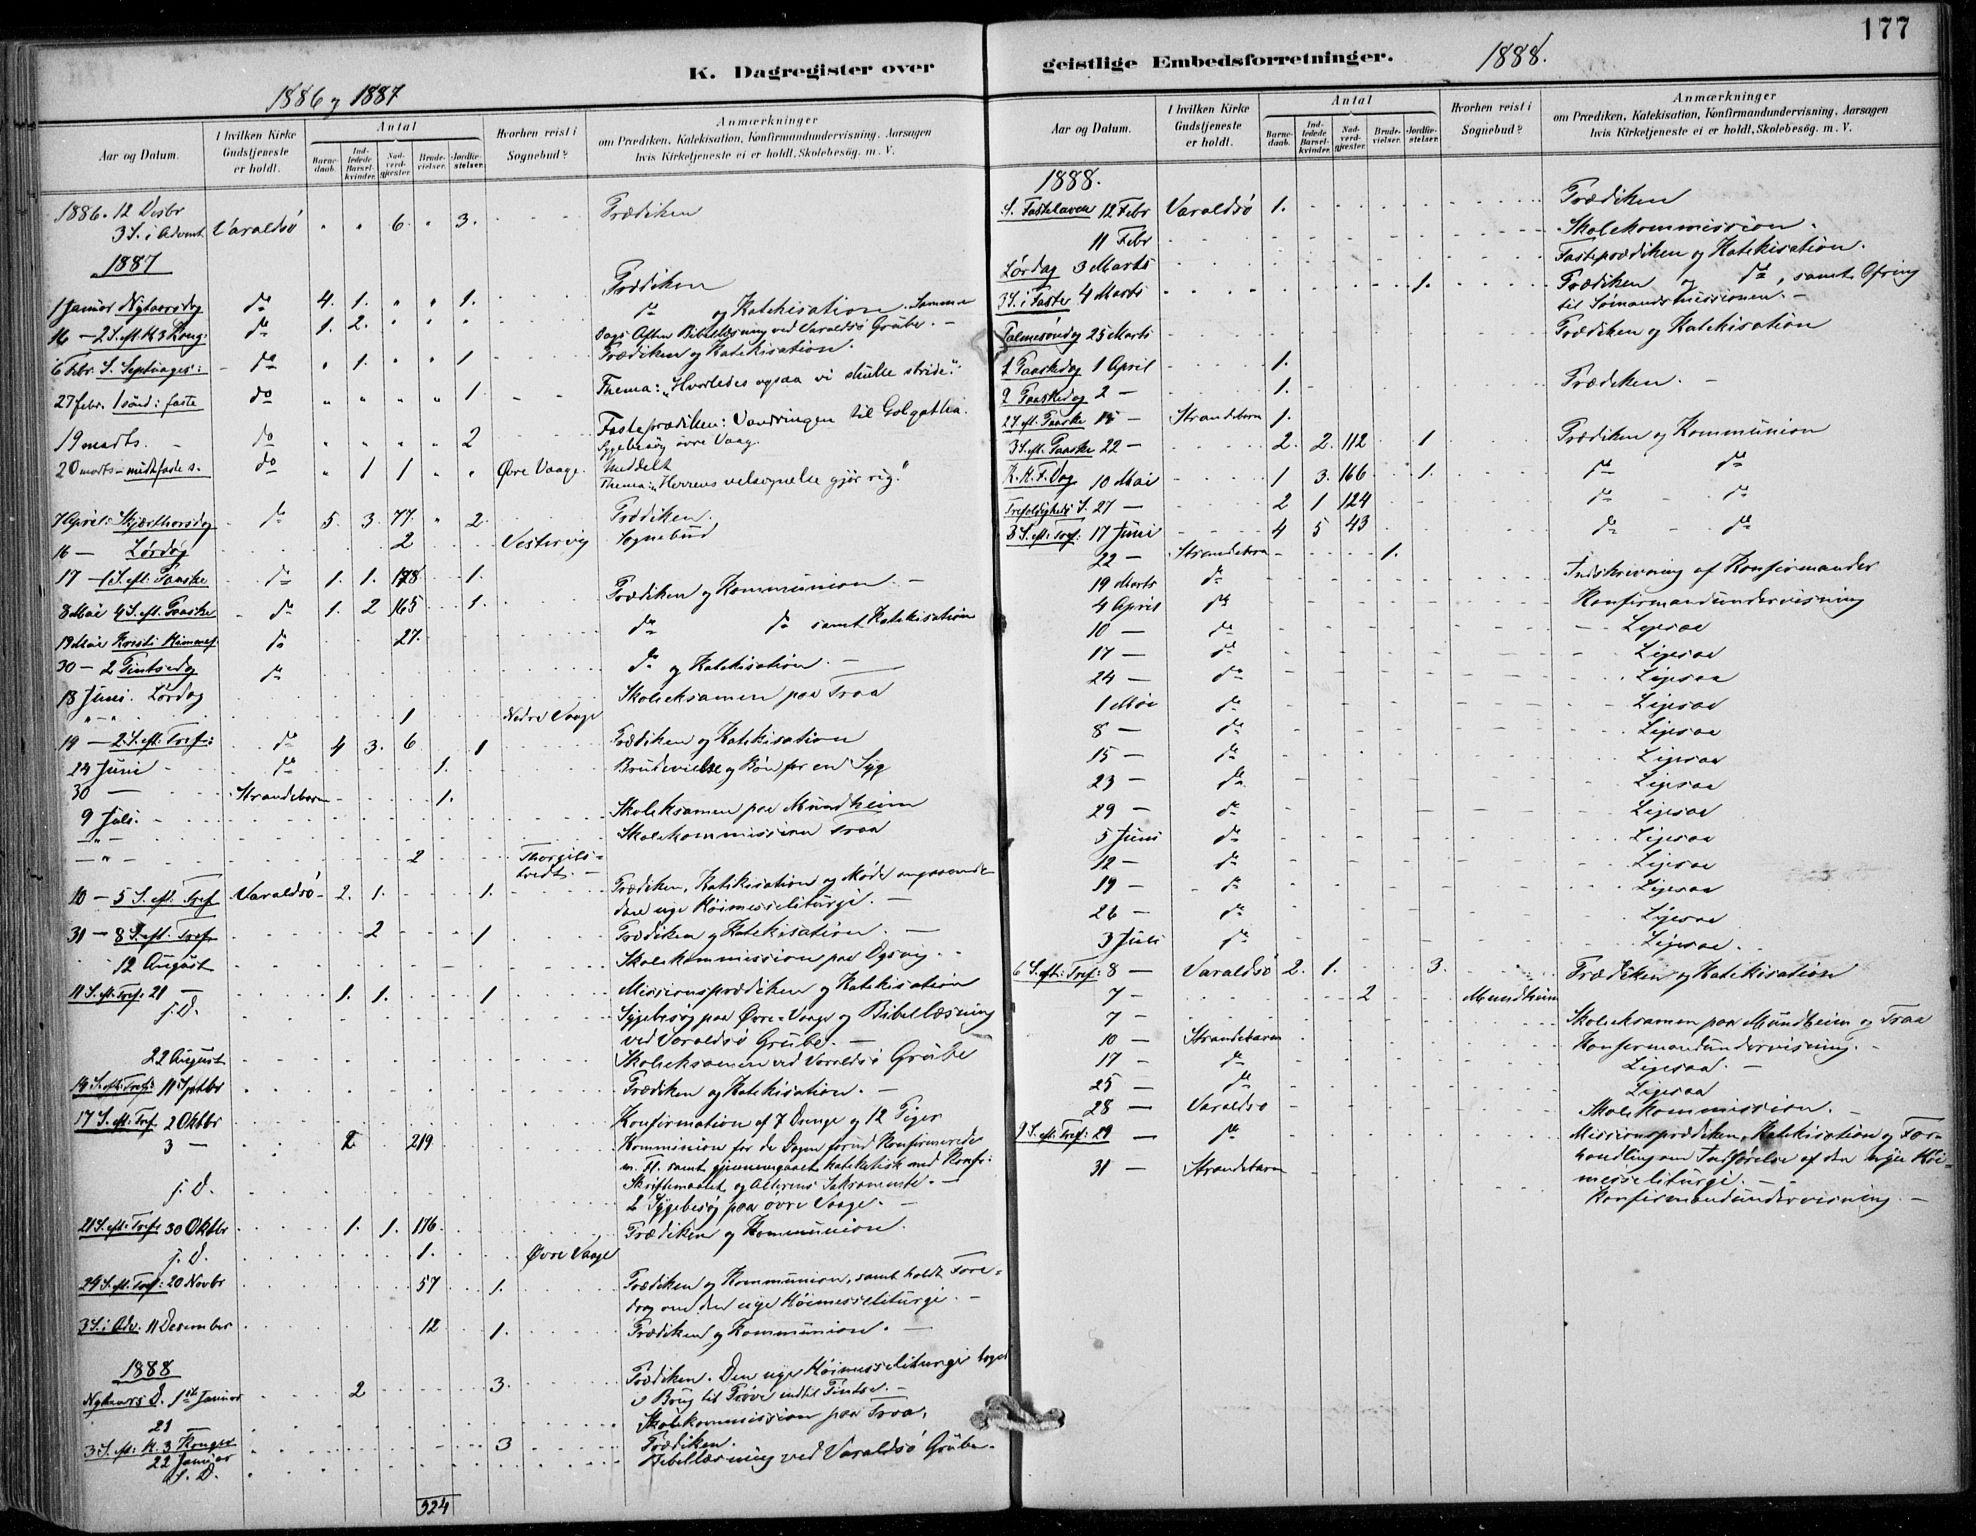 177
K. Dagregister over
1886 og 1887
Aar og Datum.
I hvilken Kirke Gudstjeneste er holdt.
Antal
Barnedaab.
Indledede Barselkvinder.
Nadverdgjæster.
Brudevielser.
Jordfæstelser.
Hvorhen reist i Sognebud?
Anmærkninger
om Prædiken, Katekisation, Konfirmandundervisning, Aarsagen
hvis Kirketjeneste ei er holdt, Skolebesøg. m. V.
1886. 12 Desbr
3 S. i Advent Varaldsö " " 6. " 3. Prædiken
1887
1 Januar Nytaarsdag do 4. 1. " " 1. Prædiken
16 — 2 S. eft. H. 3 Kong: do 1. 2. " " " do og Katekisation. Samme
Dags Aften Bibellæsning ved Varaldsö Grube. —
6 Febr. S. Septuages: do " 1. " " 1 Prædiken og Katekisation.
27 febr. 1 sönd: faste do " " " " 1. Thema: "Hvorledes ogsaa vi skulle stride."
19 marts. do " " " " 2 Fasteprædiken: Vandringen til Golgatha.
Sygebesög övre Vaag.
20 marts - midtfaste s. do " 1 1 " " Øvre Vaage. Meddelt
Thema: "Herrens velsignelse gjör rig."
7 April: Skjærthorsdag do 5. 3. 77. " 2. Prædiken.
16 — Lördag 2 Vestervig Sognebud
17 — 1 S. eft: Paaske do 1. 1. 128 1. Prædiken og Kommunion. —
8 Mai 4 S. eft. Paaske do 1. 2 165 1. do do samt Katekisation
19 Mai Kristi Himmelf do 27.
30 — 2 Pintsedag do do og Katekisation. —
18 Juni. Lördag Skoleeksamen paa Traa
" - " - 1 Nedre Vaage
19 — 2 S. eft. Tref: do 4 3. 6 1 Prædiken og Katekisation
24 Juni do 1. Brudevielse og Bön for en Syg
30 — Strandebarm 1.
9 Juli. Skoleeksamen paa Mundheim
— " — Skolekommission Traa
— " — 2 Thorgilstvedt. —
10 — 5 S. eft. Tref Varaldsö 2. 1. 1. Prædiken, Katekisation og Möde angaaende
den nye Höimesseliturgi. —
31 — 8 S. eft. Tref 2 1 Prædiken og Katekisation. —
12 August Skolekommission paa
11 S. eft. Tref. 21 — 1. 1. 1 Missionsprædiken og Katekisation
s. D. Sygebesög paa Øvre-Vaage og Bibellæsning
ved Varaldsö Grube. —
22 August Skoleeksamen ved Varaldsö Grube
14 S. eft. Tref: 11 Septbr Prædiken og Katekisation. —
17 S. eft. Tref. 2 Oktbr Konfirmation af 7 Drenge og 12 Piger
3 — 2 219 Kommunion for de Dagen forud Konfirmerede
m. Fl. samt gjennemgaaet katekatisk med Konfr:
Skriftemaalet og Alterens Sakramente. —
s. D. 2 Sygebesög paa övre Vaage. —
21 S. eft. Tref 30 Oktbr 1. 1. 176 Prædiken og Kommunion.
s. D. 1. Øvre Vaage
24 S. eft. Tref: 20 Novbr 57 1. Prædiken og Kommunion, samt holdt Fore-
drag om den nye Höimesseliturgi. —
3 S. i Adv. 11 Desember 12 1. Prædiken og Kommunion. —
1888
Nytaars D. 1ste Januar 2 3. Prædiken. Den nye Höimesseliturgi taget
i Brug til Pröve indtil Pintse. —
21 Skolekommission paa Traa.
3 S. eft. H. 3 Konger 22 Januar 3 Prædiken.
s. D. Bibellæsning ved Varaldsö Grube.
324
geistlige Embedsforretninger.
1888.
Aar og Datum.
I hvilken Kirke Gudstjeneste er holdt.
Antal
Barnedaab.
Indledede Barselkvinder.
Nadverdgjæster.
Brudevielser.
Jordfæstelser.
Hvorhen reist i Sognebud?
Anmærkninger
om Prædiken, Katekisation, Konfirmandundervisning, Aarsagen
hvis Kirketjeneste ei er holdt, Skolebesög. m. V.
1888.
S. Fastelaven 12 Febr Varaldsö 1. Prædiken
11 Febr Skolekommission.
Lördag 3 Marts Fasteprædiken og Katekisation.
3 S. i Faste 4 Marts 1. Prædiken og do, samt Ofring
til Sömandsmissionen. —
Palmesöndag 25 Marts Prædiken og Katekisation
1 Paaskedag 1 April 1.
2 Paaskedag 2 — 1. Prædiken. —
2 S. eft. Paaske 15 — Strandebarm 1.
3 S. eft. Paaske 22 — 2. 2. 112 1 Prædiken og Kommunion
K. H. F. Dag 10 Mai 1 3. 166 1. do do
Trefoldigheds S. 27 — 2 1 124 do do
3 S. eft. Tref: 17 Juni 4 5 43 do do
22 — Strandebarm 1.
19 Marts do Indskrivning af Konfirmander
4 April do Konfirmandundervisning
10 — do Ligesaa
17 — do Ligesaa
24 — do Ligesaa
1 Mai do Ligesaa
8 — do Ligesaa
15 — do Ligesaa
23 — do Ligesaa
29 — do Ligesaa
5 Juni do Ligesaa
12 — do Ligesaa
19 — do Ligesaa
26 — do Ligesaa
3 Juli do Ligesaa.
6 S. eft: Tref: 8 — Varaldsö 2. 1. 3. Prædiken og Katekisation
7 — 2 Mundheim
7 — Skoleeksamen paa Mundheim og Traa
10 — Strandebarm Konfirmandundervisning. —
17 — do Ligesaa. —
25 — do Ligesaa
28 — Varaldsö Skolekommission. —
9 S. eft. Tref: 29 — do Missionsprædiken, Katekisation og For-
handling om Indförelse af den nye Höi-
messeliturgi. —
31 — Strandebarm Konfirmandundervisning. —